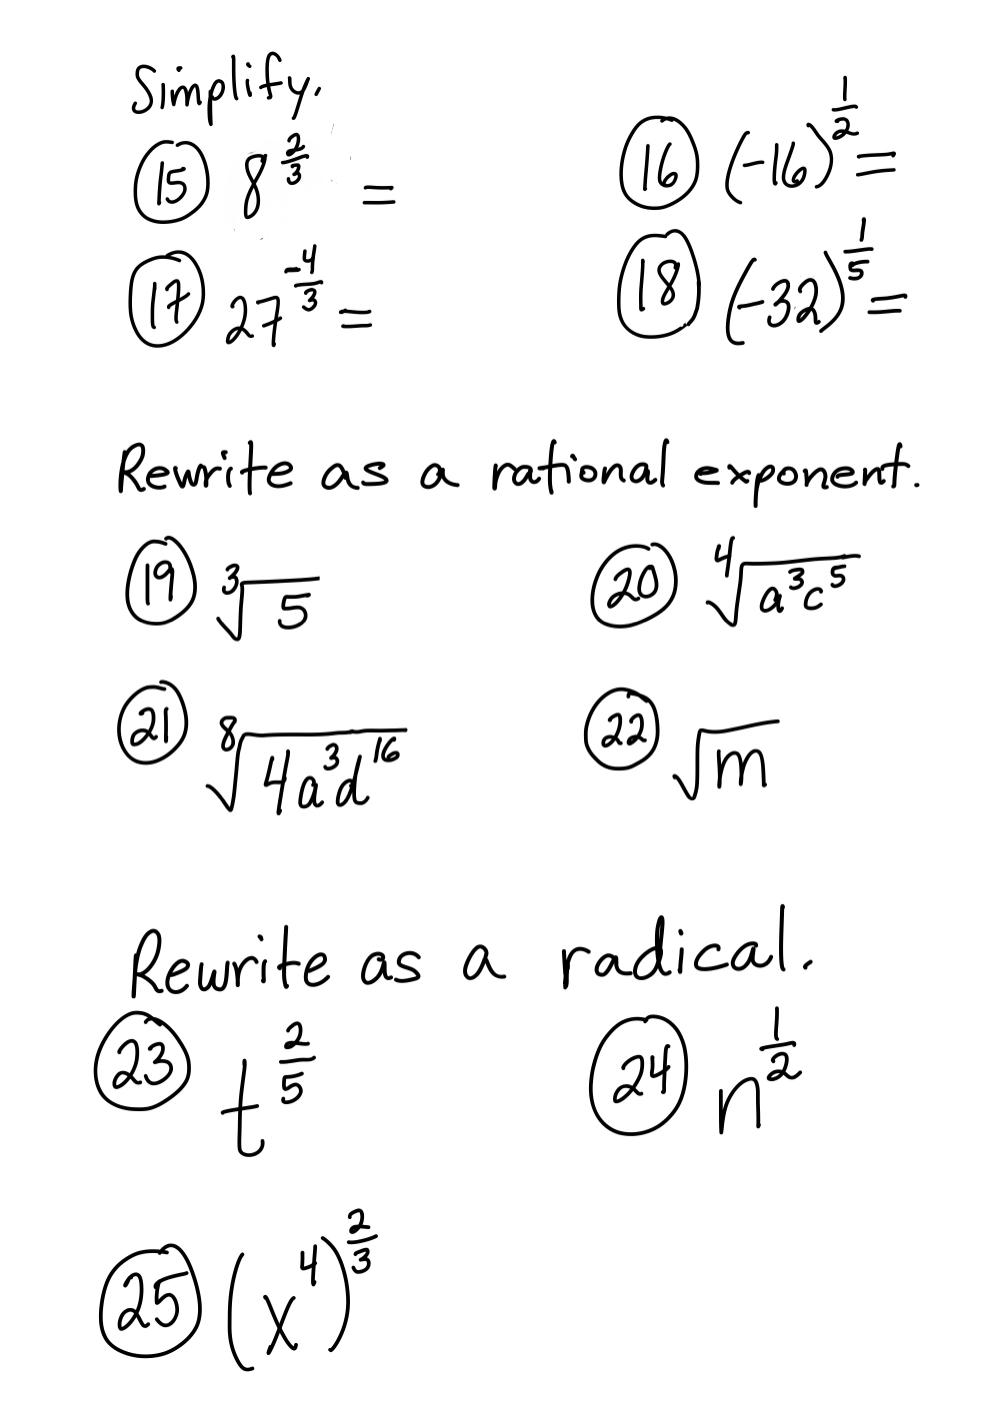 Simplify.
(15) 8^(2/3) =
(16) (-16)^(1/2) =
(17) 27^(-4/3) =
(18) (-32)^(1/5) =
Rewrite as a rational exponent.
(19) ∛5
(20) ∜(a³c⁵)
(21) ⁸√(4a³d¹⁶)
(22) √m
Rewrite as a radical.
(23) t^(2/5)
(24) n^(1/2)
(25) (x⁴)^(2/3)